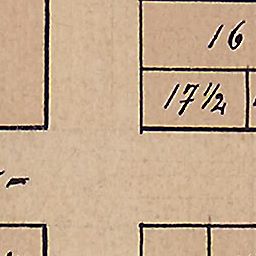 16
17½